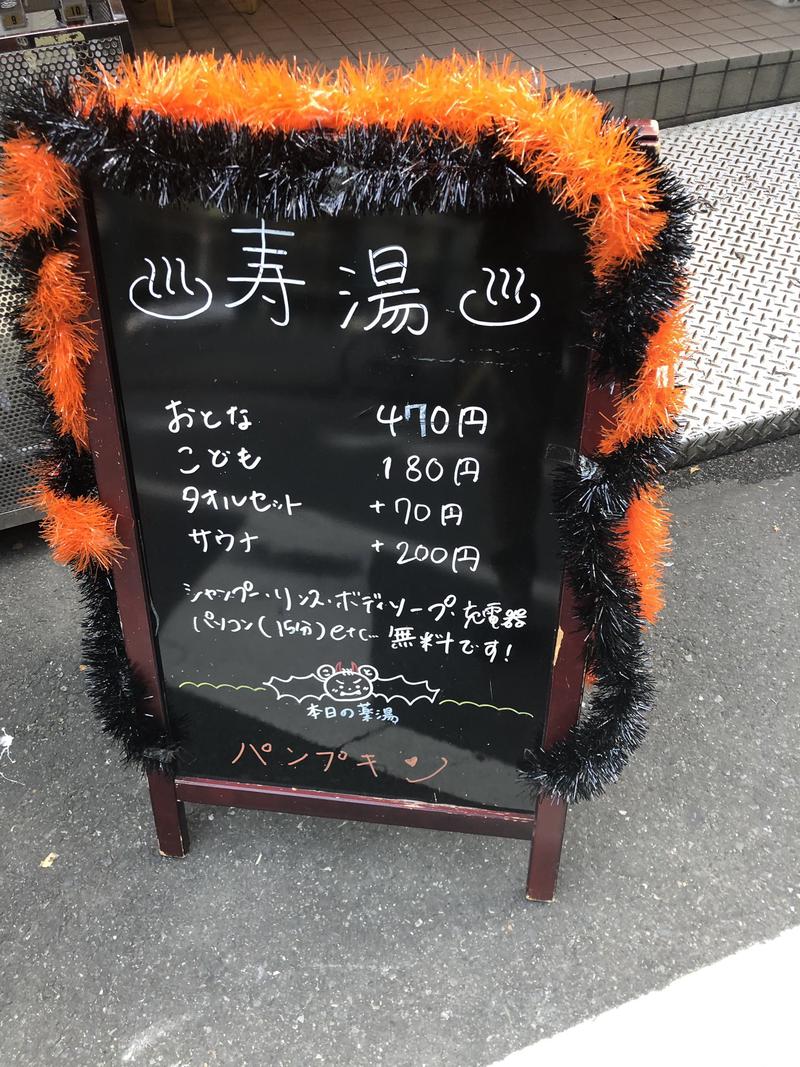 ♨寿湯♨
おとな 470円
こども 180円
タオルセット +70円
サウナ +200円
シャンプー・リンス・ボディソープ・充電器
パソコン(15分)etc… 無料です!
本日の薬湯
パンプキン